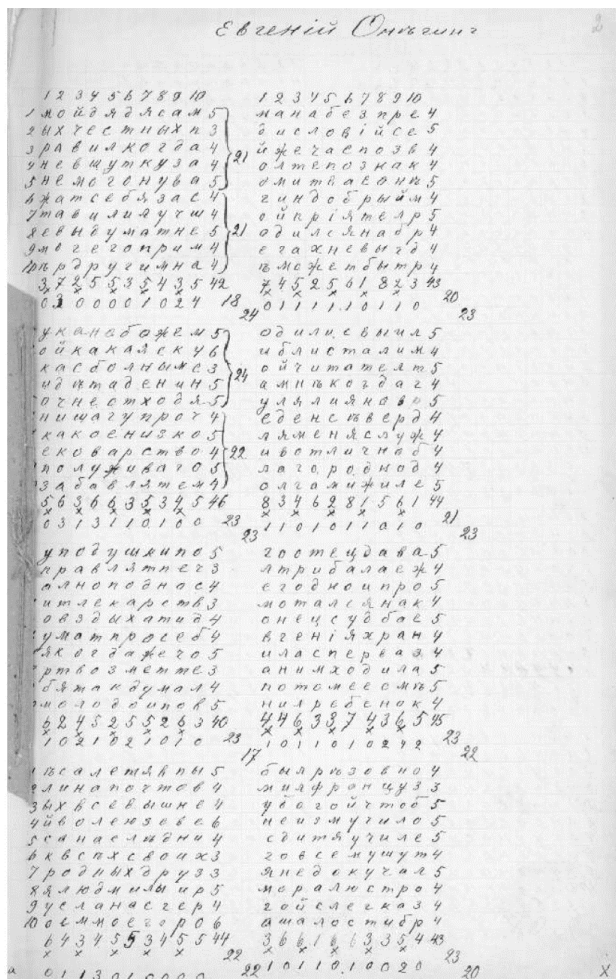 Евгеній Онѣгинъ
2
1 2 3 4 5 6 7 8 9 10
1 мойдядясам 5
2 ыхчестныхп 3
3 равилкогда 4
4 невшуткуза 4
5 немогонува 5
21
6 жатсебязас 4
7 тавилилучш 4
8 евыдуматне 5
9 могегоприм 4
10 ѣрдругимна 4
21
3 7 2 5 5 3 5 4 3 5 42
× × × × ×
0 3 0 0 0 0 1 0 2 4 18
24
1 2 3 4 5 6 7 8 9 10
манабезпре 4
бисловійсе 5
йжечаспозв 4
олтепознак 4
омитвасонѣ 5
гиндобрыйм 4
ойпріятелр 5
одилсянабр 4
егахневыгд 4
ѣможетбытр 4
7 4 5 2 5 6 1 8 2 3 43
× × × × ×
0 1 1 1 1 1 0 1 1 0 20
23
уканебожем 5
ойкакаяску 6
касболнымс 3
идѣтиденин 5
очнеотходя 5
24
нишагупроч 4
какоенизко 5
ековарство 4
полуживаго 5
забавлятем 4
22
5 6 3 6 6 3 5 3 4 5 46
× × × × ×
0 3 1 3 1 1 0 1 0 0 23
23
одилисвыил 5
иблисталим 4
ойчитателт 5
амнѣкогдаг 4
улялияновр 5
еденсѣверд 4
ляменяслуж 4
ивотличноб 4
лагороднод 4
олгамижиле 5
8 3 4 6 2 8 1 5 6 1 44
× × × × ×
1 1 0 1 0 1 1 0 1 0 21
23
уподушкипо 5
правлятпеч 3
алноподнос 4
итлекарств 3
овздыхатид 4
уматпросеб 4
якогдажечо 5
ртвозметте 3
бятакдумал 4
молодоипов 5
6 2 4 5 2 5 5 2 6 3 40
× × × × ×
1 0 2 1 0 2 1 0 1 0 23
17
гоотецдава 5
лтрибалаеж 4
егодноипро 5
моталсянак 4
онецсудбае 5
вгеніяхран 4
иласперваз 4
анимходила 5
потомеесмѣ 5
нилребенок 4
4 4 6 3 3 7 4 3 6 5 45
× × × × ×
1 0 1 1 0 1 0 2 4 2 23
22
1 ѣсалетявпы 5
2 линапочтов 4
3 ыхвсевышне 4
4 йволеюзеве 6
5 санаслѣдни 4
6 квсѣхсвоих 3
7 родныхдруз 3
8 ялюдмилыир 5
9 усланасгер 4
10 оеммоегоро 6
6 4 3 4 5 5 3 4 5 5 44
× × × × ×
22
0 1 1 3 0 1 0 0 0 0 22
былрѣзовно 4
милфранцуз 3
убогойчтоб 5
неизмучило 5
сдитяучиле 5
говсемушут 4
янедокучал 5
моралюстро 4
гойслегказ 4
ашалостибр 4
3 6 6 1 6 6 3 3 5 4 43
× × × × ×
23
1 0 1 1 0 1 0 0 2 0 20